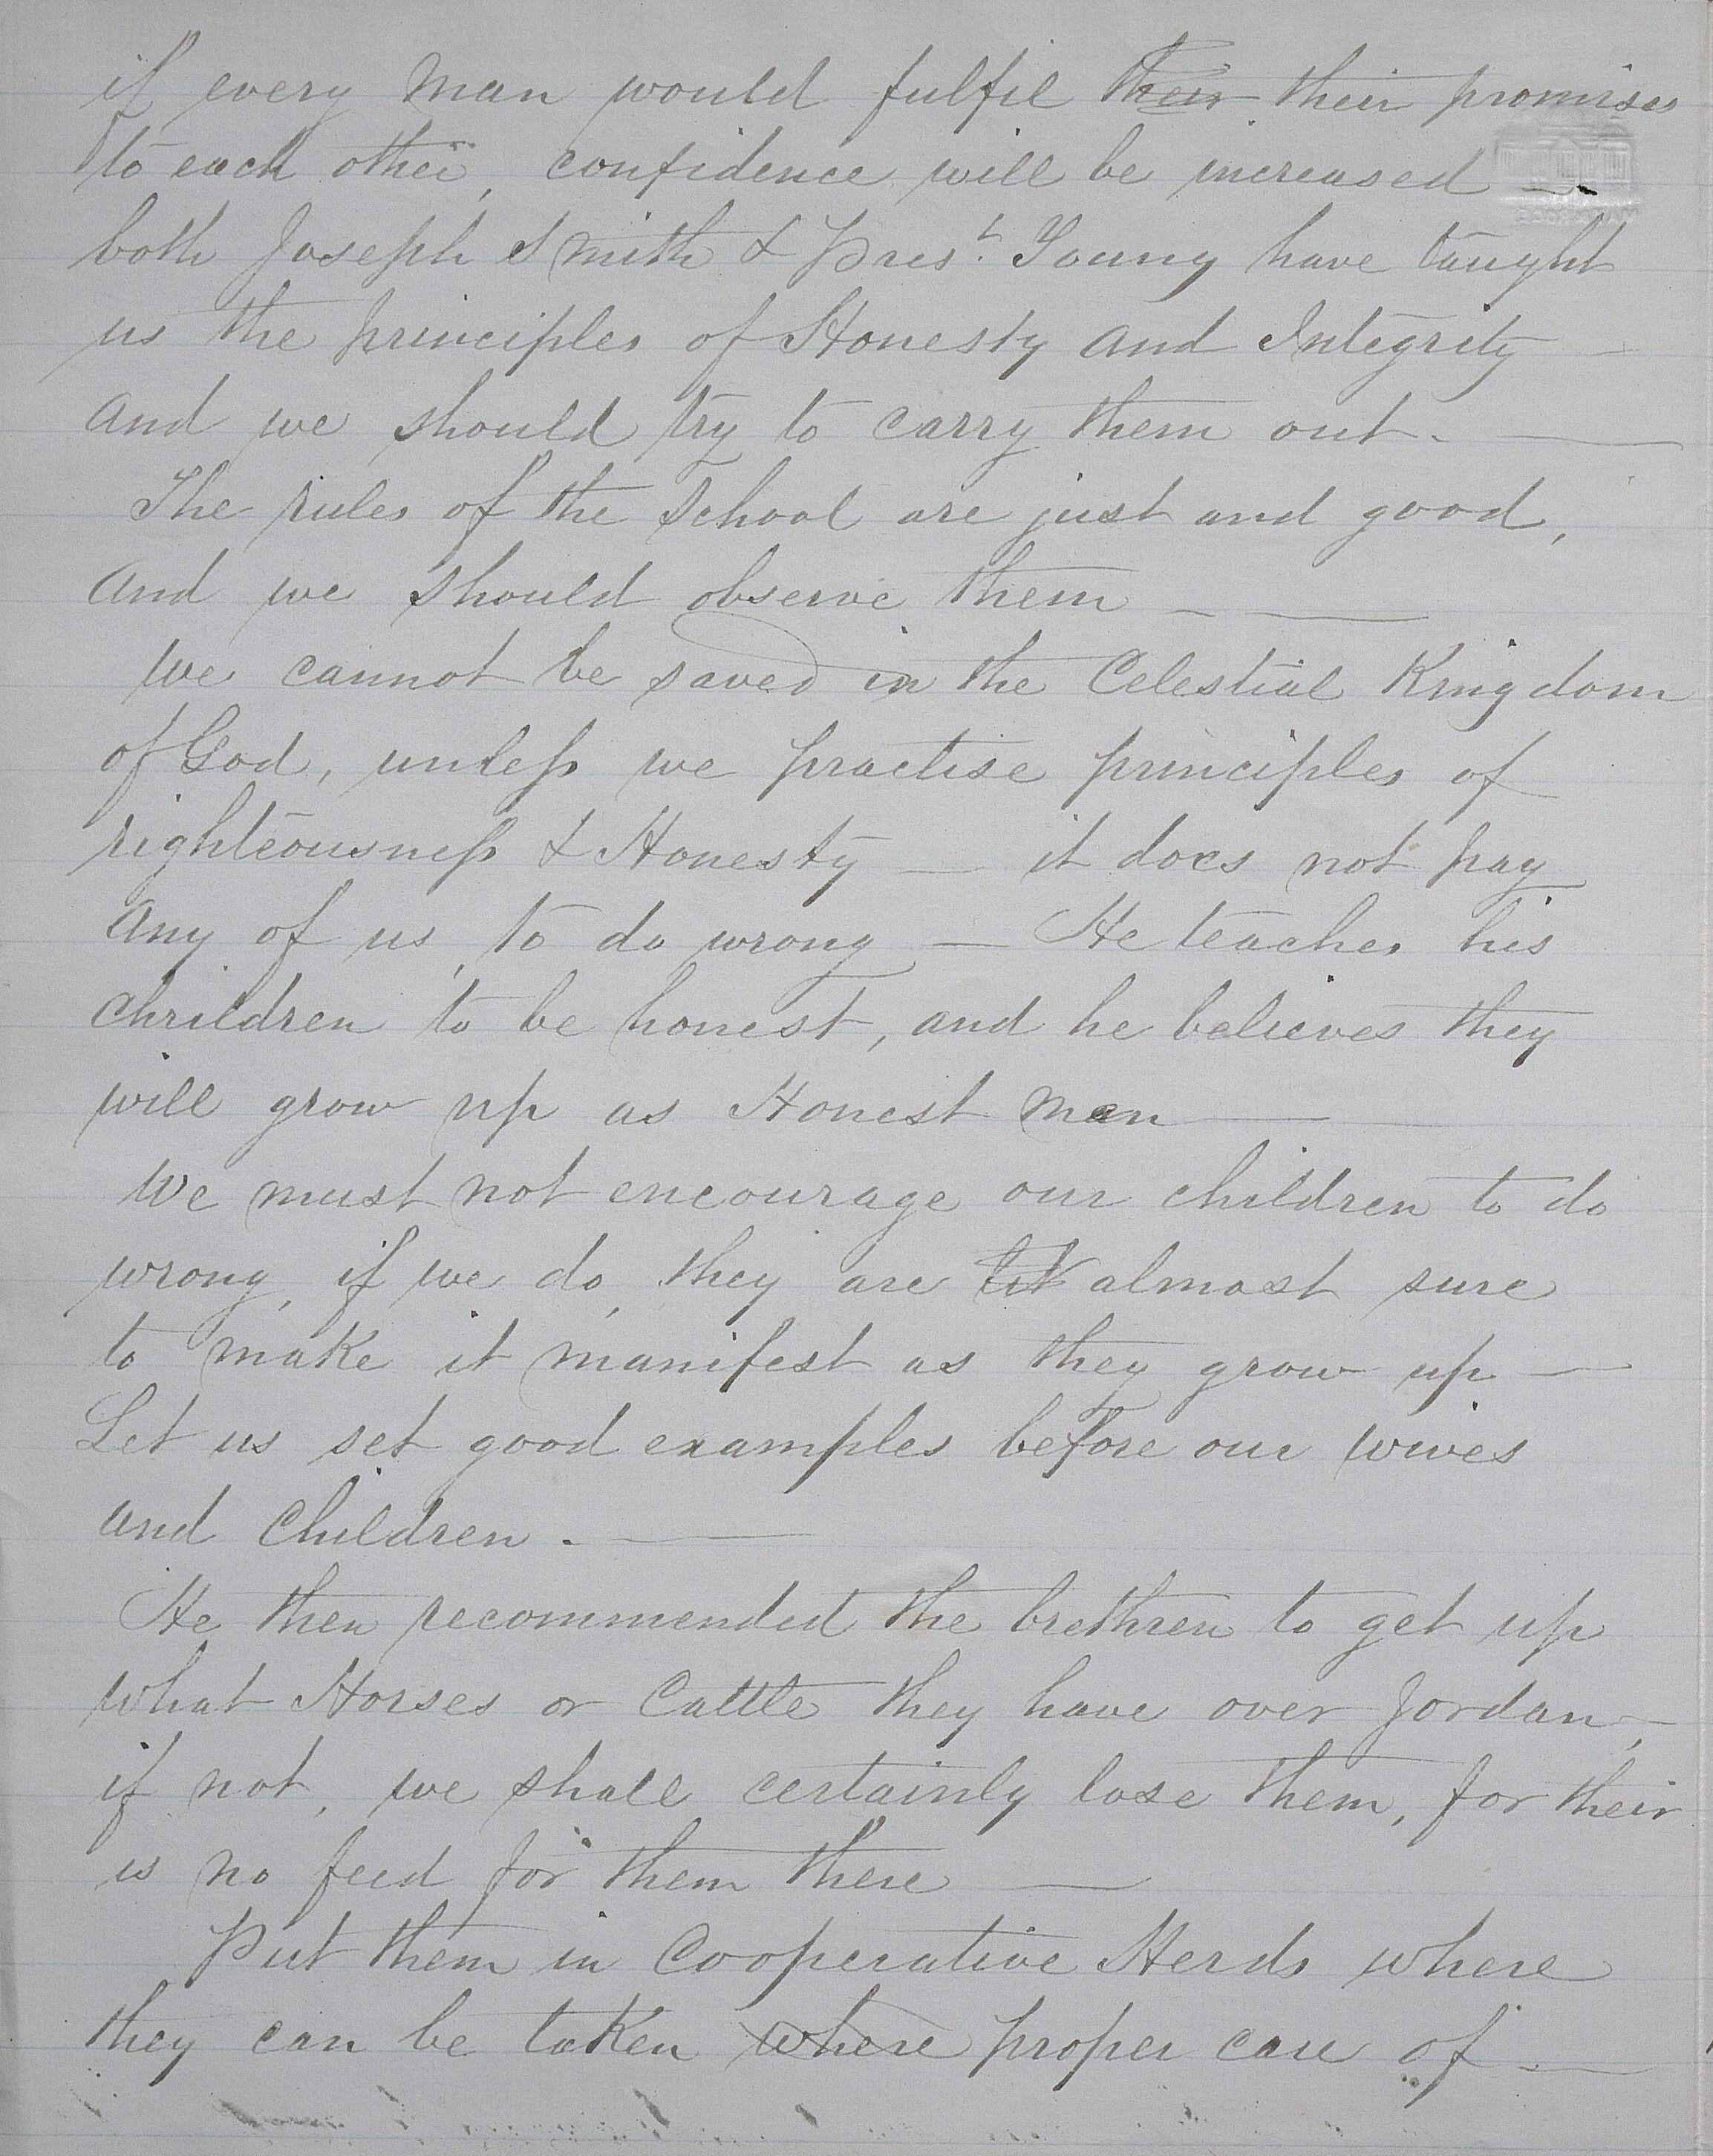 if every man would fulfil their their promises
to each other, confidence will be increased —
both Joseph Smith & Prest. Young have taught
us the principles of Honesty and Integrity —
and we should try to carry them out. —
The rules of the School are just and good,
and we should observe them — —
We cannot be saved in the Celestial Kingdom
of God, unless we practise principles of
righteousness & Honesty — it does not pay
any of us, to do wrong — He teaches his
children to be honest, and he believes they
will grow up as Honest men —
We must not encourage our children to do
wrong, if we do, they are almost sure
to make it manifest as they grow up —
Let us set good examples before our wives
and Children. —
He then recommended the brethren to get up
what Horses or Cattle they have over Jordan, —
if not, we shall certainly lose them, for their
is no feed for them there —
Put them in Cooperative Herds where
they can be taken where proper care of —